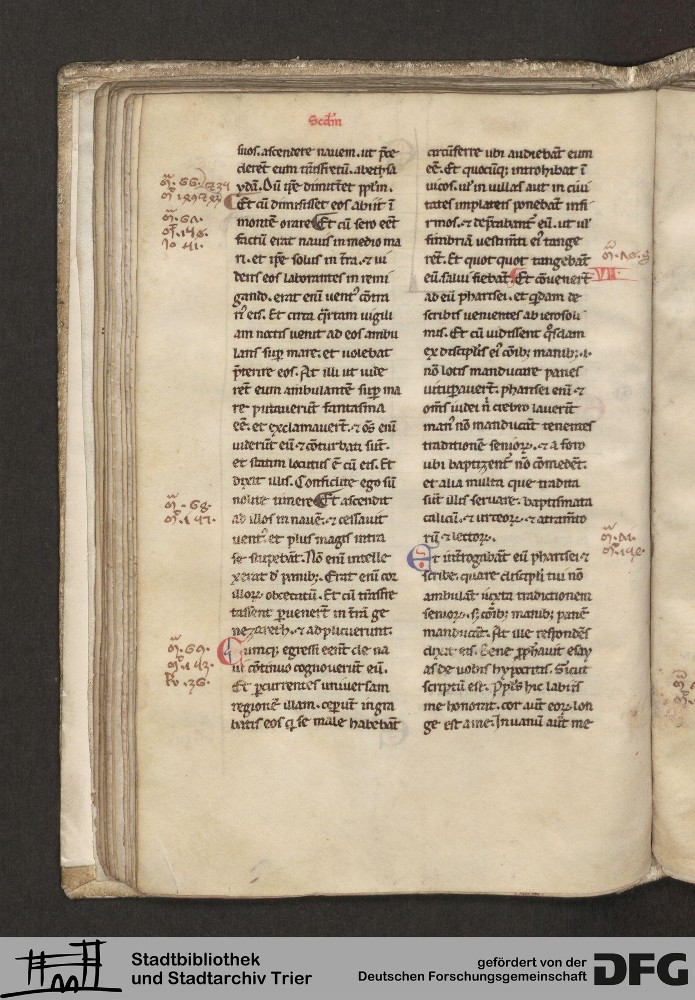 Scdm
suos. ascendere nauem. ut p̄ce
derent eum tn̄sfretū. abethsa
ydā. Dū ip̄e dimitt̄et pp̄lm.
Et cū dimisisset eos abiit ī
montē orare Et cū sero eēt
factū erat nauis in medio ma
ri. et ip̄e solus in t̄ra. ⁊ ui
dens eos laborantes in remi
gando. erat enī uent᷒ cōtra
ri᷒ eis. Et circa q̄rtam uigili
am noctis uenit ad eos ambu
lans sup̄ mare. et uolebat
p̄terire eos. At illi ut uide
rēt eum ambulantē sup̄ ma
re putauerūt fantasma
eē. et exclamauert̄. ⁊ om̄s enī
uiderūt eū ⁊ cōturbati sūt.
et statim locutus ē cū eis. Et
dixit illis. Confidite ego sū
nolite timere Et ascendit
ad illos in nauē. ⁊ cessauit
uent᷒. et plus magis intra
se stupebāt. Nō enī intelle
xerat d̓ panib᷒. Erat enī cor
illoꝝ obcecatū. Et cū tn̄sfre
tassent puenerūt in t̄rā ge
nezareth. ⁊ adplicuerunt.
Cumq᷒ egressi eent̄ de na
ui cōtinuo cognouerūt eū.
Et pcurrentes uniuersam
regionē illam. ceperūt in gra
batis eos q̄ se male habebāt
circūferre ubi audiebāt eum
eē. Et quocūq᷒ introhibat ī
uicos. ul̓ in uillas aut in ciui
tates in plateis ponebant infi
rmos. ⁊ dep̄cabant̄ eū. ut ul̓
fimbriā uestim̄ti ei᷒ tange
rēt. Et quot quot tangebāt
eū. salui fiebāt Et cōuenerēt VII.
ad eū pharisei. et q̄dam de
scribis uenientes ab ierosoli
mis. Et cū uidissent q̄sdam
ex discip̄lis ei᷒ cōib᷒ manib᷒ .i.
nō lotis manducare panes
uitup̄auerūt. pharisei enī ⁊
om̄s iudei n̄ crebro lauerīt
man᷒ nō manducāt tenentes
traditionē senioꝝ. ⁊ a foro
ubi baptizent̄ nō comedēt.
et alia multa que tradita
sūt illis seruare. baptismata
calicū. ⁊ urceoꝝ. ⁊ atramto
rū ⁊ lectoꝝ.
Et int̄rogabāt eū pharisei ⁊
scribe. quare discip̄li tui nō
ambulāt iuxta traditionem
senioꝝ. s᷒ cōib᷒ manib᷒ panē
manducāt. At ille respondēs
dixit eis. Bene pp̄hauit esay
as de uobis hypocritas. Sicut
scriptū est. Pp̄ls hic labiis
me honorat. cor aūt eoꝝ lon
ge est a me. In uanū aūt me
Stadtbibliothek
und Stadtarchiv Trier
gefördert von der
Deutschen Forschungsgemeinschaft
DFG